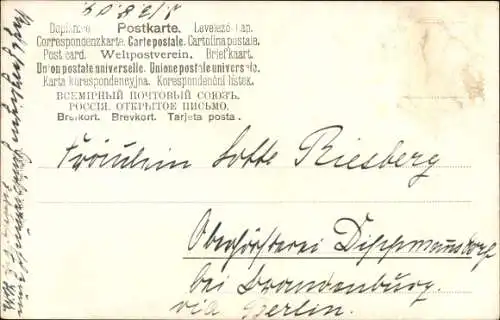 1/3 8.04.
Dopisnice Postkarte. Levelező-Lap.
Correspondenzkarte. Carte postale. Cartolina postale.
Post card. Weltpostverein. Briefkaart.
Union postale universelle. Unione postale universale.
Karta korespondencyjna. Korespondenční lístek.
ВСЕМІРНЫЙ ПОЧТОВЫЙ СОЮЗЪ.
РОССІЯ. ОТКРЫТОЕ ПИСЬМО.
Brefkort. Brevkort. Tarjeta posta.
Fräulein Lotte Riesberg
Oberförsterei Dippmannsdorf
bei Brandenburg.
via Berlin.